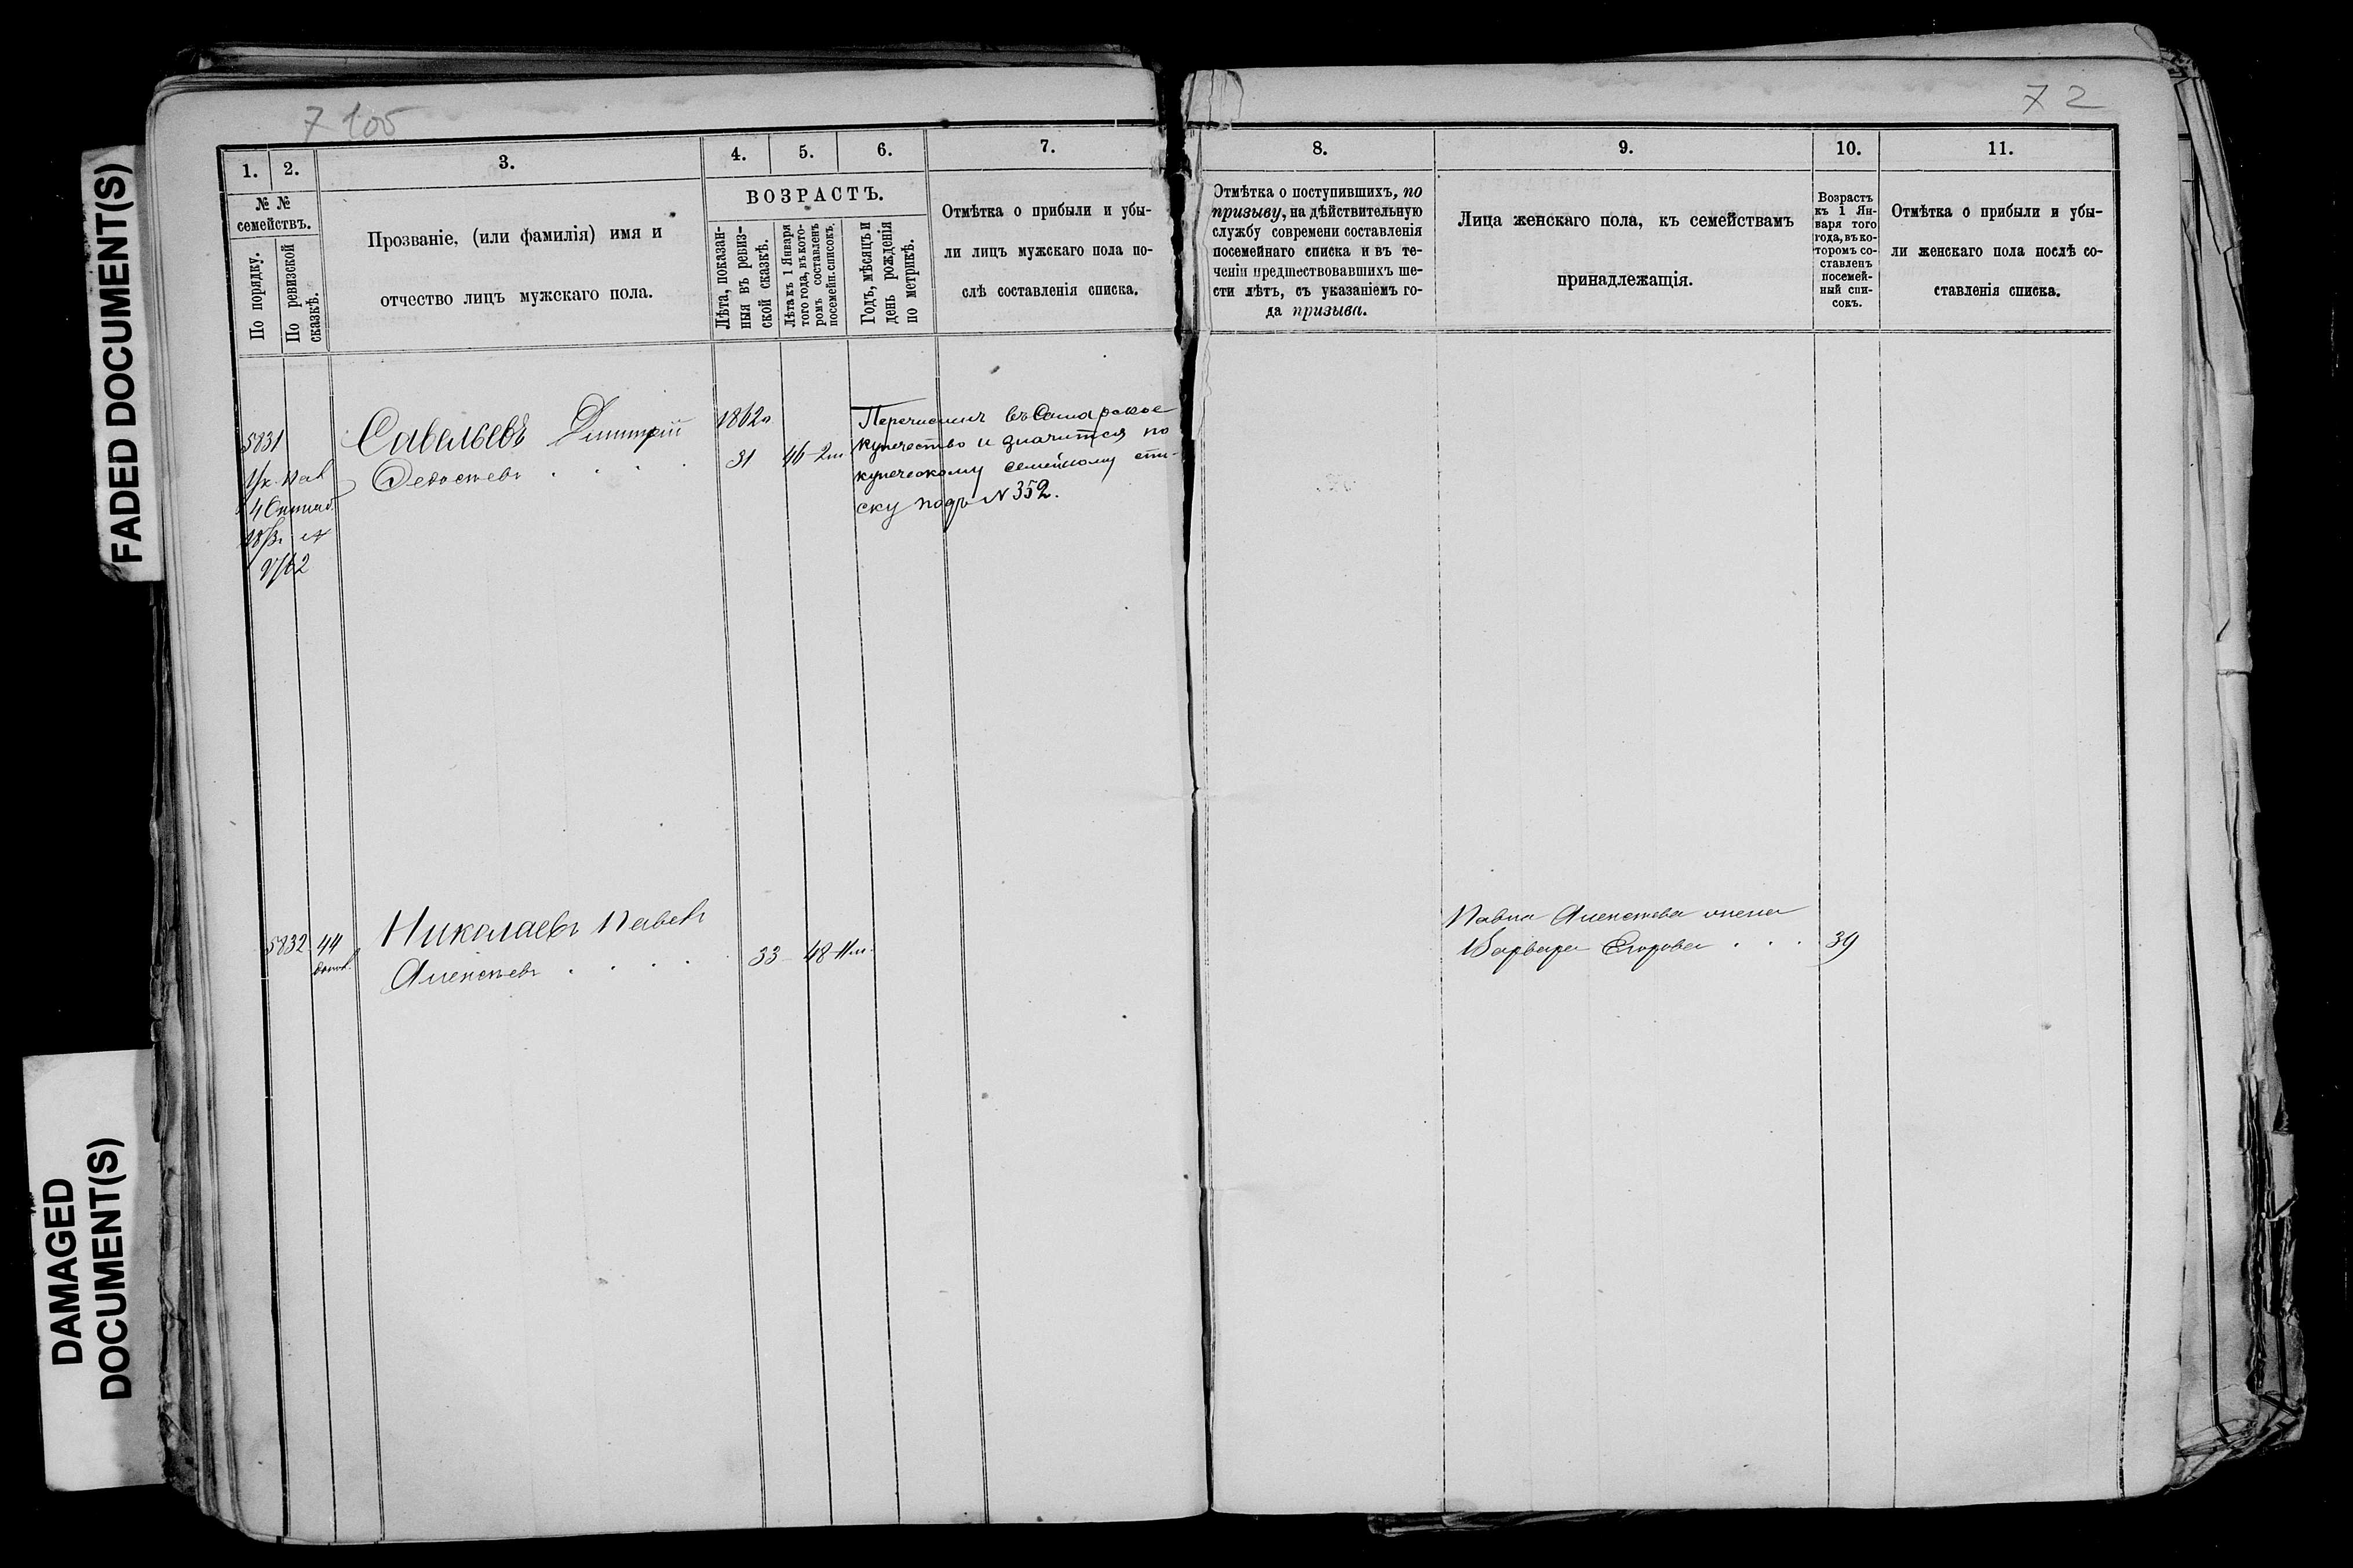 FADED DOCUMENT(S)
DAMAGED
DOCUMENT(S)
7 105
72
1.
2.
3.
4.
5.
6.
7.
8.
9.
10.
11.
№ №
семействъ.
По порядку.
По ревизской
сказкѣ.
Прозваніе, (или фамилія) имя и
отчество лицъ мужскаго пола.
ВОЗРАСТЪ.
Лѣта, показан-
ныя въ ревиз-
ской сказкѣ.
Лѣта къ 1 Января
того года, въ кото-
ромъ составленъ
посемейн. списокъ.
Годъ, мѣсяцъ и
день рожденія
по метрикѣ.
Отмѣтка о прибыли и убы-
ли лицъ мужскаго пола по-
слѣ составленія списка.
Отмѣтка о поступившихъ, по
призыву, на дѣйствительную
службу современи составленія
посемейнаго списка и въ те-
ченіи предшествовавшихъ ше-
сти лѣтъ, съ указаніемъ го-
да призыва.
Лица женскаго пола, къ семействамъ
принадлежащія.
Возрастъ
къ 1 Ян-
варя того
года, въ ко-
торомъ со-
ставленъ
посемей-
ный спи-
сокъ.
Отмѣтка о прибыли и убы-
ли женскаго пола послѣ со-
ставленія списка.
5831
Савельевъ Дмитрій
1862г
31
46-2м
Перечисленъ въ Самарское
купечество и значится по
купеческому семейному спи-
ску подъ № 352.
5832
44
Николаевъ Павелъ
Алексѣевъ . . . .
33
48-11м.
Павла Алексѣева жена
Варвара Егорова . . .
39